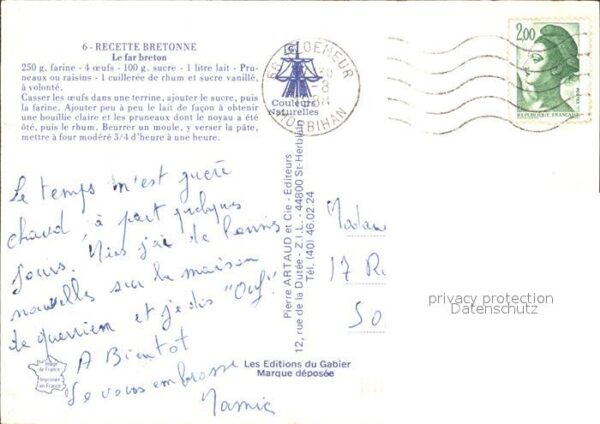 6 - RECETTE BRETONNE
Le far breton
250 g. farine - 4 œufs - 100 g. sucre - 1 litre lait - Pru-
neaux ou raisins - 1 cuillerée de rhum et sucre vanillé,
à volonté.
Casser les œufs dans une terrine, ajouter le sucre, puis
la farine. Ajouter peu à peu le lait de façon à obtenir
une bouillie claire et les pruneaux dont le noyau a été
ôté, puis le rhum. Beurrer un moule, y verser la pâte,
mettre à four modéré 3/4 d'heure à une heure.
Couleurs
Naturelles
56 PLOEMEUR
MORBIHAN
2,00
REPUBLIQUE FRANÇAISE
Le temps n'est guère
chaud à part quelques
jours. Mais j'ai de bonnes
nouvelles sur la maison
de querrien et je dis "Ouf".
A Bientot
Je vous embrasse
Mamie
Pierre ARTAUD et Cie - Editeurs
12, rue de la Dutée - Z.I.L. - 44800 St-Herblain
Tél. (40) 46.02.24
Madame
17 R
50
privacy protection
Datenschutz
Image
de France
Imprimée
en France
Les Editions du Gabier
Marque déposée